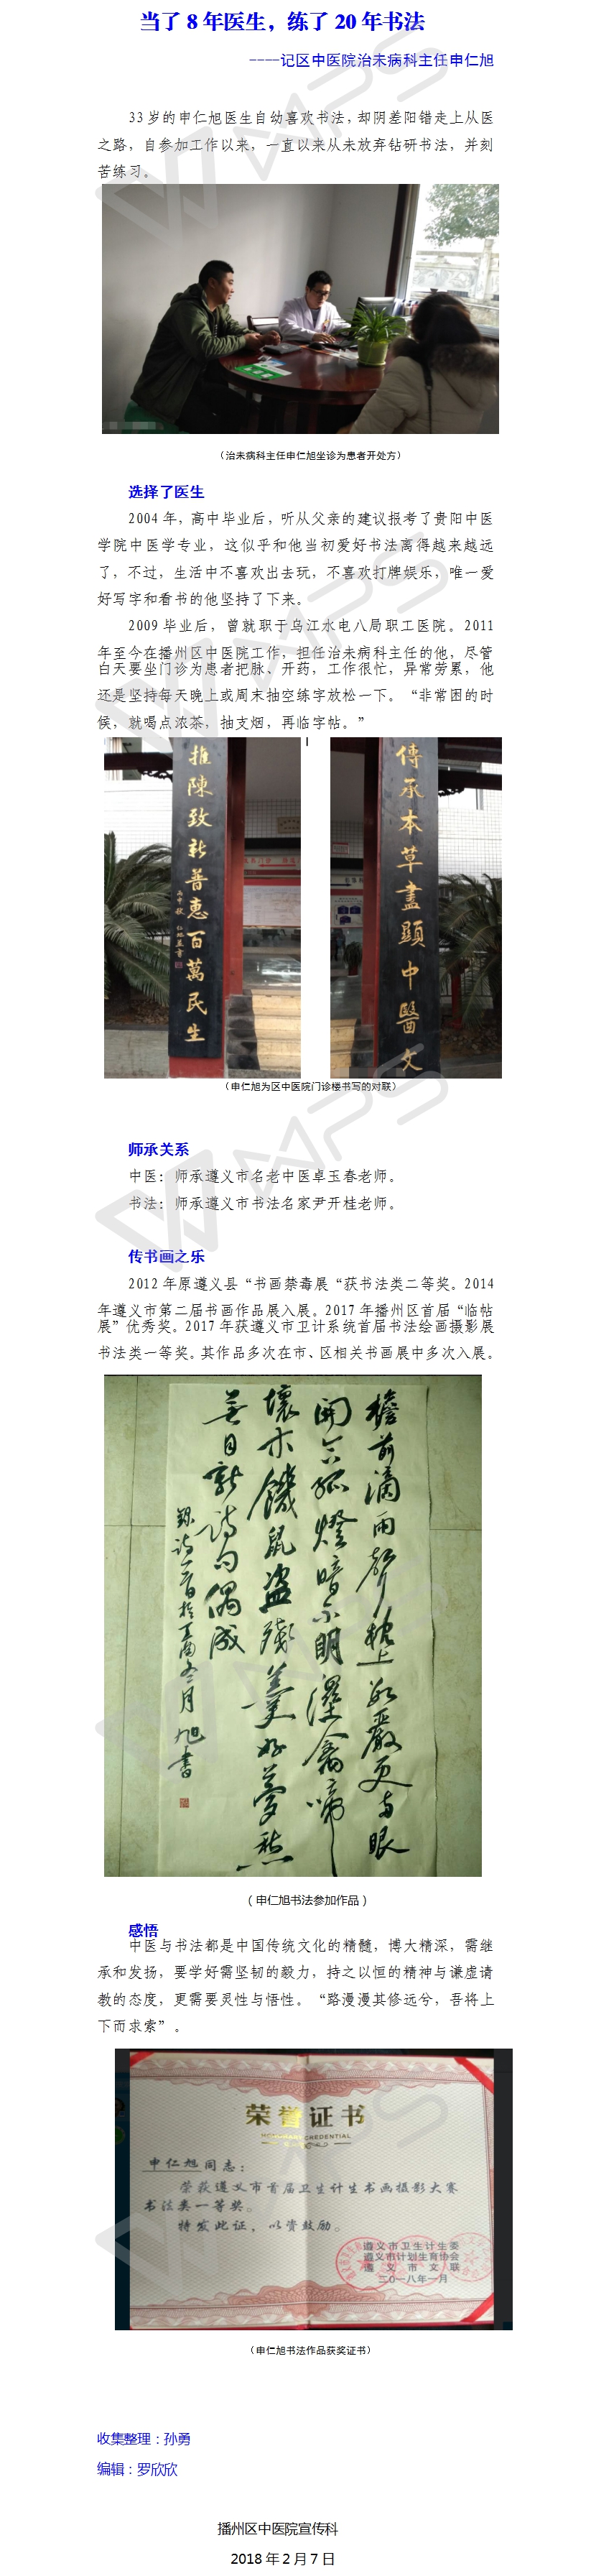 当了 8 年医生，练了 20 年书法
----记区中医院治未病科主任申仁旭
33 岁的申仁旭医生自幼喜欢书法，却阴差阳错走上从医
之路，自参加工作以来，一直以来从未放弃钻研书法，并刻
苦练习。
（治未病科主任申仁旭坐诊为患者开处方）
选择了医生
2004 年，高中毕业后，听从父亲的建议报考了贵阳中医
学院中医学专业，这似乎和他当初爱好书法离得越来越远
了，不过，生活中不喜欢出去玩，不喜欢打牌娱乐，唯一爱
好写字和看书的他坚持了下来。
2009 毕业后，曾就职于乌江水电八局职工医院。2011
年至今在播州区中医院工作，担任治未病科主任的他，尽管
白天要坐门诊为患者把脉、开药，工作很忙，异常劳累，他
还是坚持每天晚上或周末抽空练字放松一下。“非常困的时
候，就喝点浓茶，抽支烟，再临字帖。”
推陳致新普惠百萬民生
傳承本草盡顯中醫文
（申仁旭为区中医院门诊楼书写的对联）
师承关系
中医：师承遵义市名老中医卓玉春老师。
书法：师承遵义市书法名家尹开桂老师。
传书画之乐
2012 年原遵义县“书画禁毒展“获书法类二等奖。2014
年遵义市第二届书画作品展入展。2017 年播州区首届“临帖
展”优秀奖。2017 年获遵义市卫计系统首届书法绘画摄影展
书法类一等奖。其作品多次在市、区相关书画展中多次入展。
檐前滴雨聲
枕上
嚴更
眼
開
孤燈暗
明
禽啼
壞木饑鼠盜殘羹好夢
日新詩句偶成
丁酉冬月旭書
（申仁旭书法参加作品）
感悟
中医与书法都是中国传统文化的精髓，博大精深，需继
承和发扬，要学好需坚韧的毅力，持之以恒的精神与谦虚请
教的态度，更需要灵性与悟性。“路漫漫其修远兮，吾将上
下而求索”。
荣誉证书
HONORARY CREDENTIAL
申仁旭同志：
荣获遵义市首届卫生计生书画摄影大赛
书法类一等奖。
特发此证，以资鼓励。
遵义市卫生计生委
遵义市计划生育协会
遵义市文联
二〇一八年一月
（申仁旭书法作品获奖证书）
收集整理：孙勇
编辑：罗欣欣
播州区中医院宣传科
2018 年 2 月 7 日
WPS